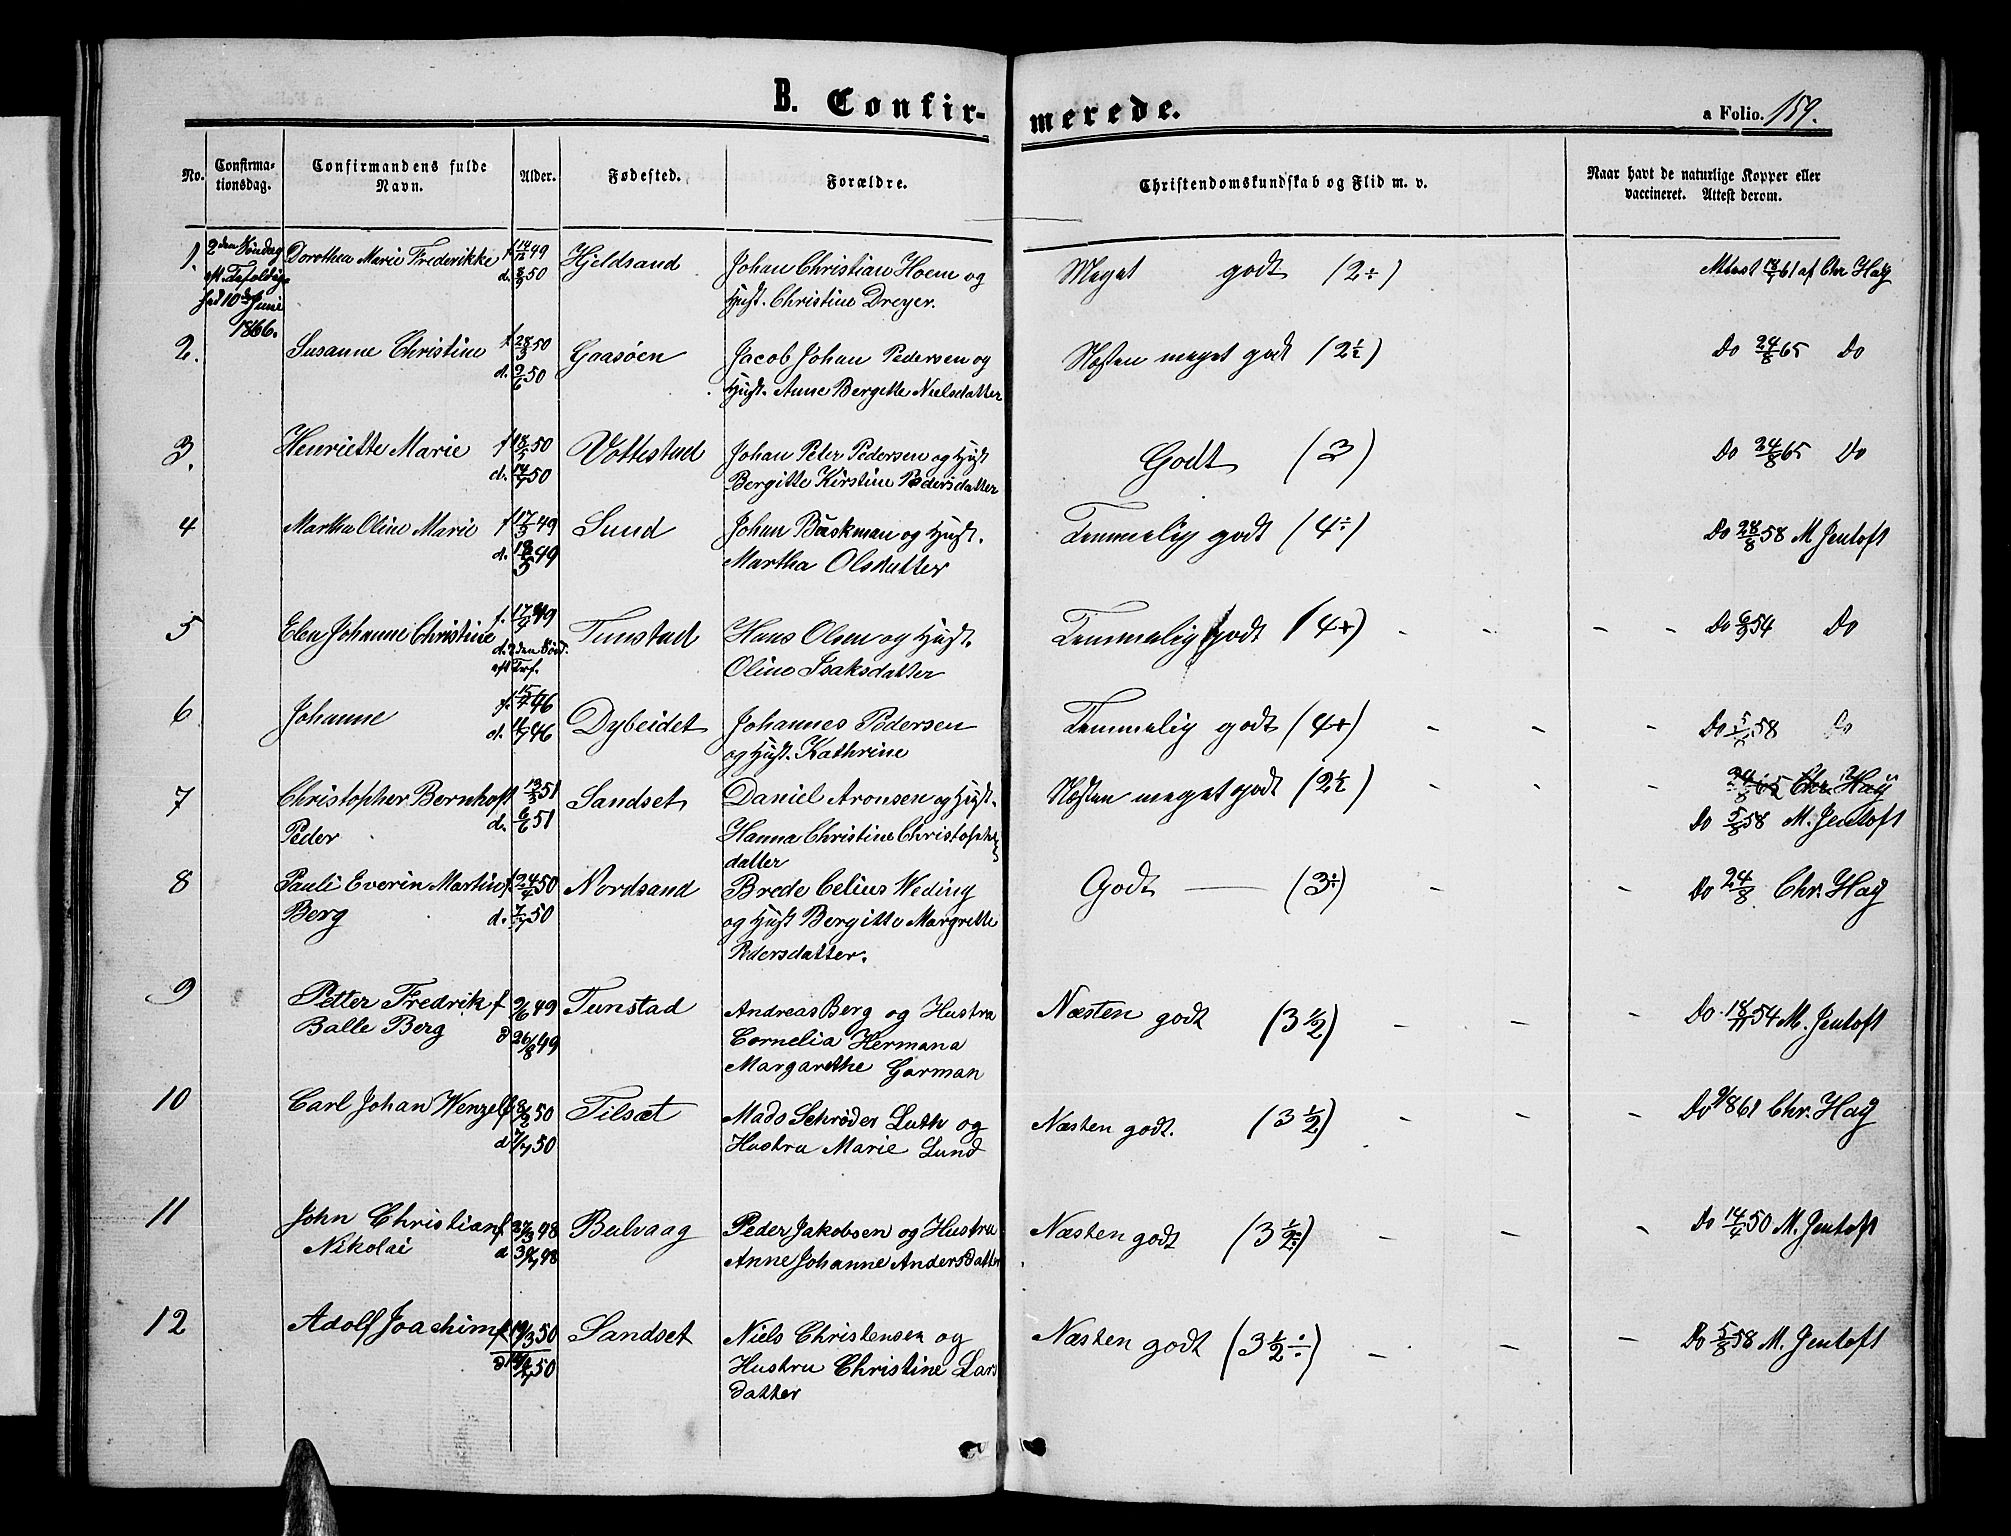 B. Confir-
merede.
a Folio. 159.
No.
Confirma-
tionsdag.
Confirmandens fulde
Navn.
Alder.
Fødested.
Forældre.
Christendomskundskab og Flid m. v.
Naar havt de naturlige Kopper eller
vaccineret. Attest derom.
1. 2den Søndag Dorothea Marie Frederikke f 14/12 49 Hjeldsand Johan Christian Hoem og Meget godt (2÷) Attest 61 af Chr Hay
eft. Trefoldig- d. 50 Hust. Christine Dreyer.
hed 10de Juni
1866.
2. Susanne Christine f 28/3 50 Gaasøen Jacob Johan Pedersen og Næsten meget godt (2½) Do 24/8 65 Do
d. 2/6 50 Hust. Anne Bergitte Nielsdatter
3. Henriette Marie f 18/5 50 Vottestad Johan Peter Pedersen og Hust Godt (3) Do 24/8 65 Do
d. 14/7 50 Bergitte Kirstine Pedersdatter
4 Martha Oline Marie f 17/3 49 Sund Johan Bäckman og Hust. Temmelig godt (4÷) Do 28/8 58 M Jentoft
d. 49 Martha Olsdatter
5 Elen Johanne Christine f. 17/4 49 Tunstad Hans Olsen og Hust. Temmelig godt (4+) - - - - Do 54 Do
d. 2den Sønd.
eft Tref. Oline Isaksdatter
6 Johanne f. 46 Dybeidet Johannes Pedersen Temmelig godt (4+) - - - Do 58 Do
d. 46 og Hust. Kathrine
7 Christopher Bernhoft 13/3 51 Sandset Daniel Aronsen og Hust. Næsten meget godt (2½) - - - 24/8 65 Chr. Hay
Peder d. 6/6 51 Hanna Christine Christophers Do 5/8 58 M. Jentoft
datter
8 Pauli Everin Martin f. 24/4 50 Nordsand Brede Celius Weding Godt — (3÷) - - Do 24/8 Chr. Hay
Berg d. 7/7 50 og Hust Bergitte Margrette
Pedersdatter.
9 Petter Fredrik f 9/6 49 Tunstad Andreas Berg og Hustru Næsten godt (3½) - - - Do 18/11 54 M. Jentoft
Balle Berg d 26/8 49 Cornelia Hermana
Margarethe Garman
10 Carl Johan Wenzel f 8/2 50 Tilsæt Mads Schrøder Luth og Næsten godt. (3½) - - - Do 9/8 61 Chr. Hay
d 7/7 50 Hustru Marie Lund
11 John Christian f. 27/3 48 Bulvaag Peder Jakobsen og Hustru Næsten godt (3½÷) - - - Do 14/4 50 M. Jentoft
Nikolai d 48 Anne Johanne Andersdatter
12 Adolf Joachim f 19/3 50 Sandset Niels Christensen og Næsten godt (3½÷) - - - Do 5/8 58 M. Jentoft
d 50 Hustru Christine Lars
datter